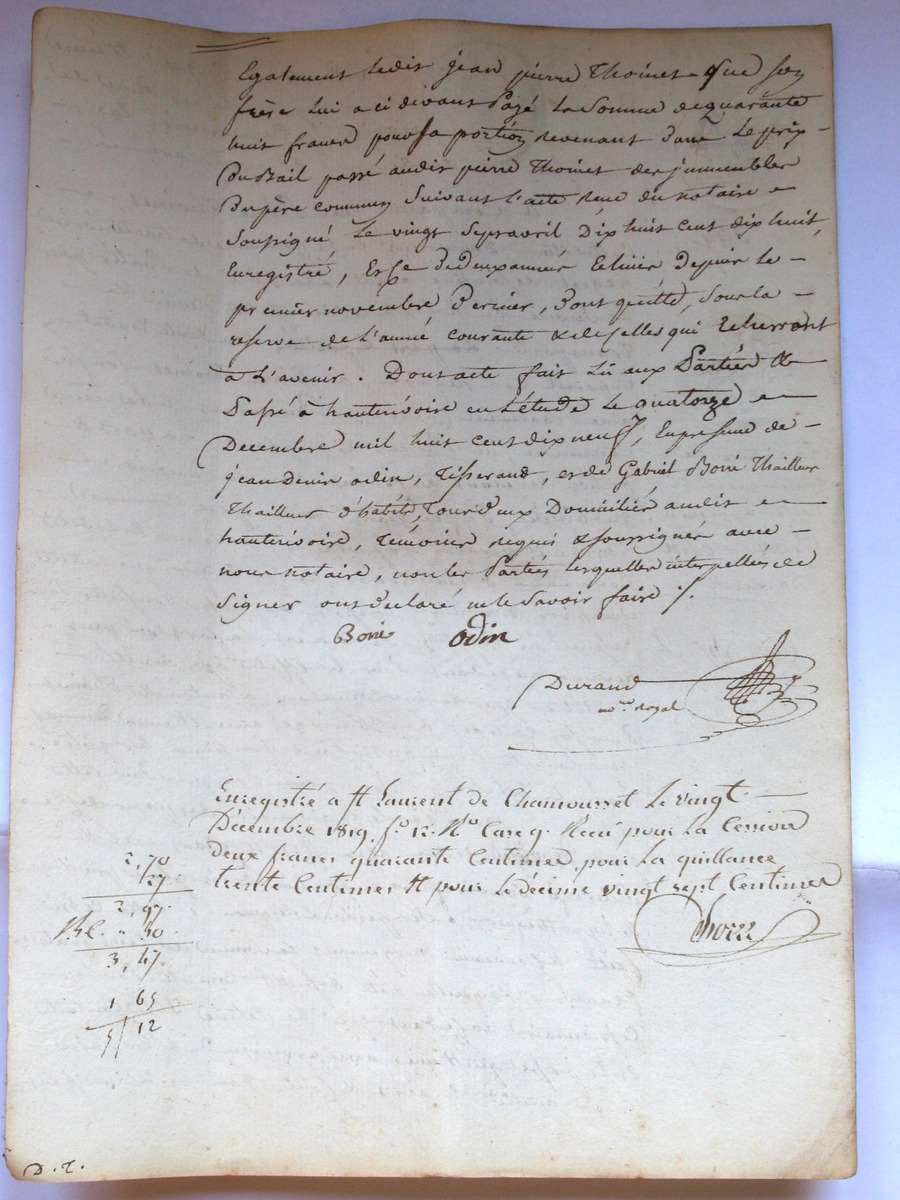 Egalement ledit jean pierre Thoinet que son
frère lui a ci divant payé la Somme de quarante
huit francs pour sa portion revenant dans le prix
Du Bail passé audit pierre Thoinet des jmmeubles
Du père commun Suivant l'acte reçu du notaire
Soussigné le vingt Sept avril Dix huit cent dix huit,
Enregistré, Et ce de deux années Echues depuis le
premier novembre Dernier, Dont quitte, Sous la
reserve de L'année courante & de Celles qui Echerront
à L'avenir. Dont acte fait Lû aux Parties &
Passé à hauterivoire en L'étude le quatorze
Decembre mil huit cent dix neuf, En présence de
jean Denis odin, Tisserand, et de Gabriel Borie Thailleur
Thailleur d'habits, Tous deux Domiciliés audit
hauterivoire, Témoins requis & soussignés avec
nous notaire, non les Parties lesquelles interpellées de
Signer ont declaré ne le Savoir faire ./.
Borie odin
Durand
nore Royal
Enregistré a St Laurent de Chamousset le vingt
Décembre 1819 fo 12 Ro Case 9. Recu pour la Cession
deux francs quarante Centimes, pour la quittance
trente Centimes Et pour le décime vingt sept Centimes
2, 70
27
2, 97
" 50
3, 47
1 65
5 12
D. T.